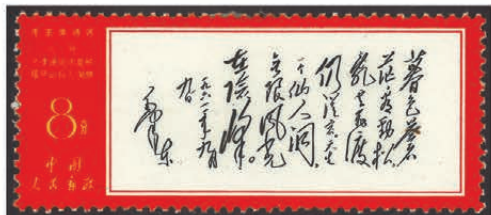 毛主席诗词
七绝
为李进同志题所摄
庐山仙人洞照
8分
中国
人民邮政
暮色苍
茫看劲松,
乱云飞渡
仍从容天生
一个仙人洞,
无限风光
在险峰。
一九六一年九月
九日
毛泽东